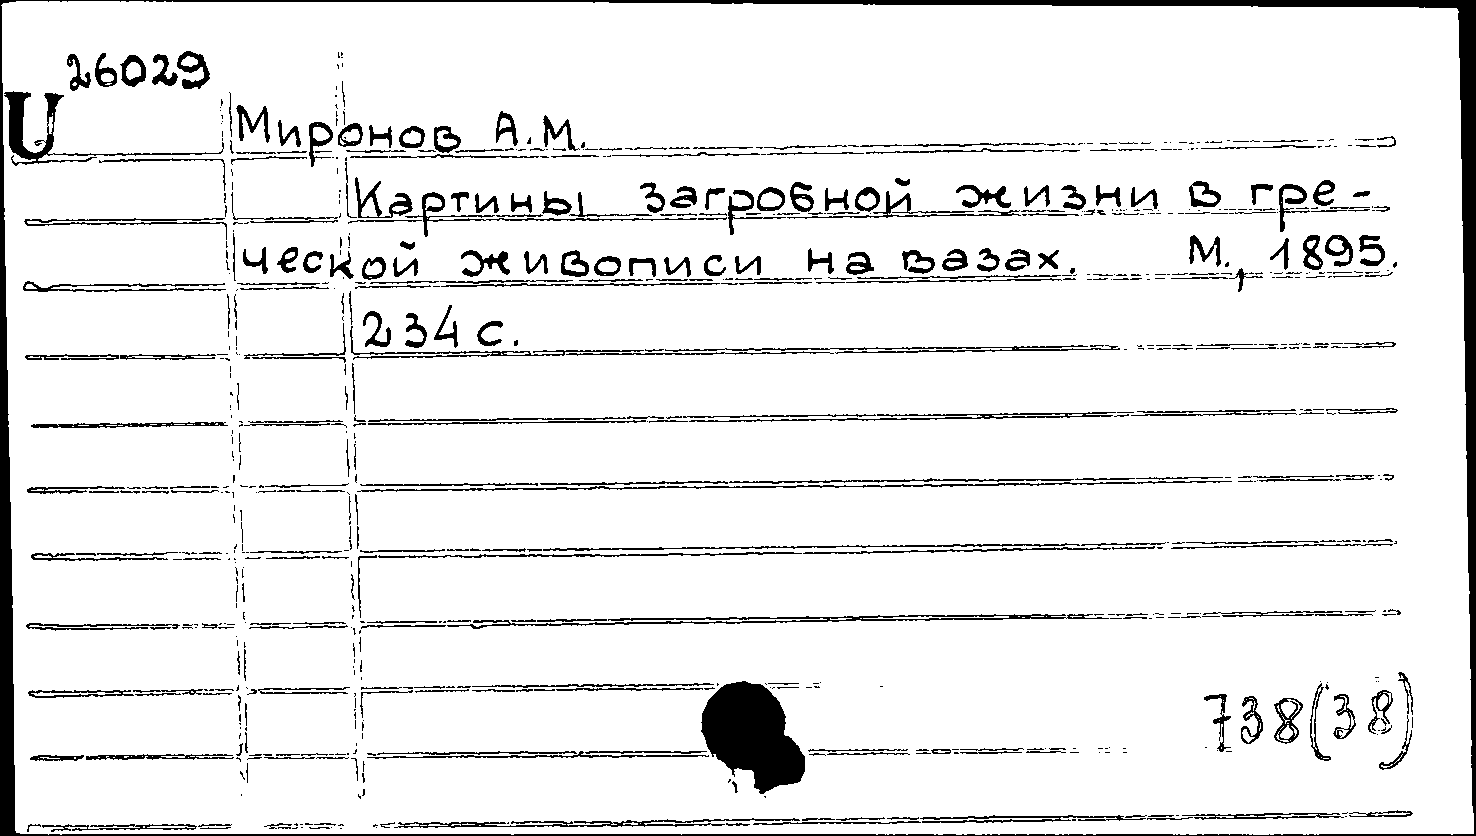 26029
U
Миронов А.М.
Картины загробной жизни в гре-
ческой живописи на вазах. М., 1895.
234 с.
738(38)